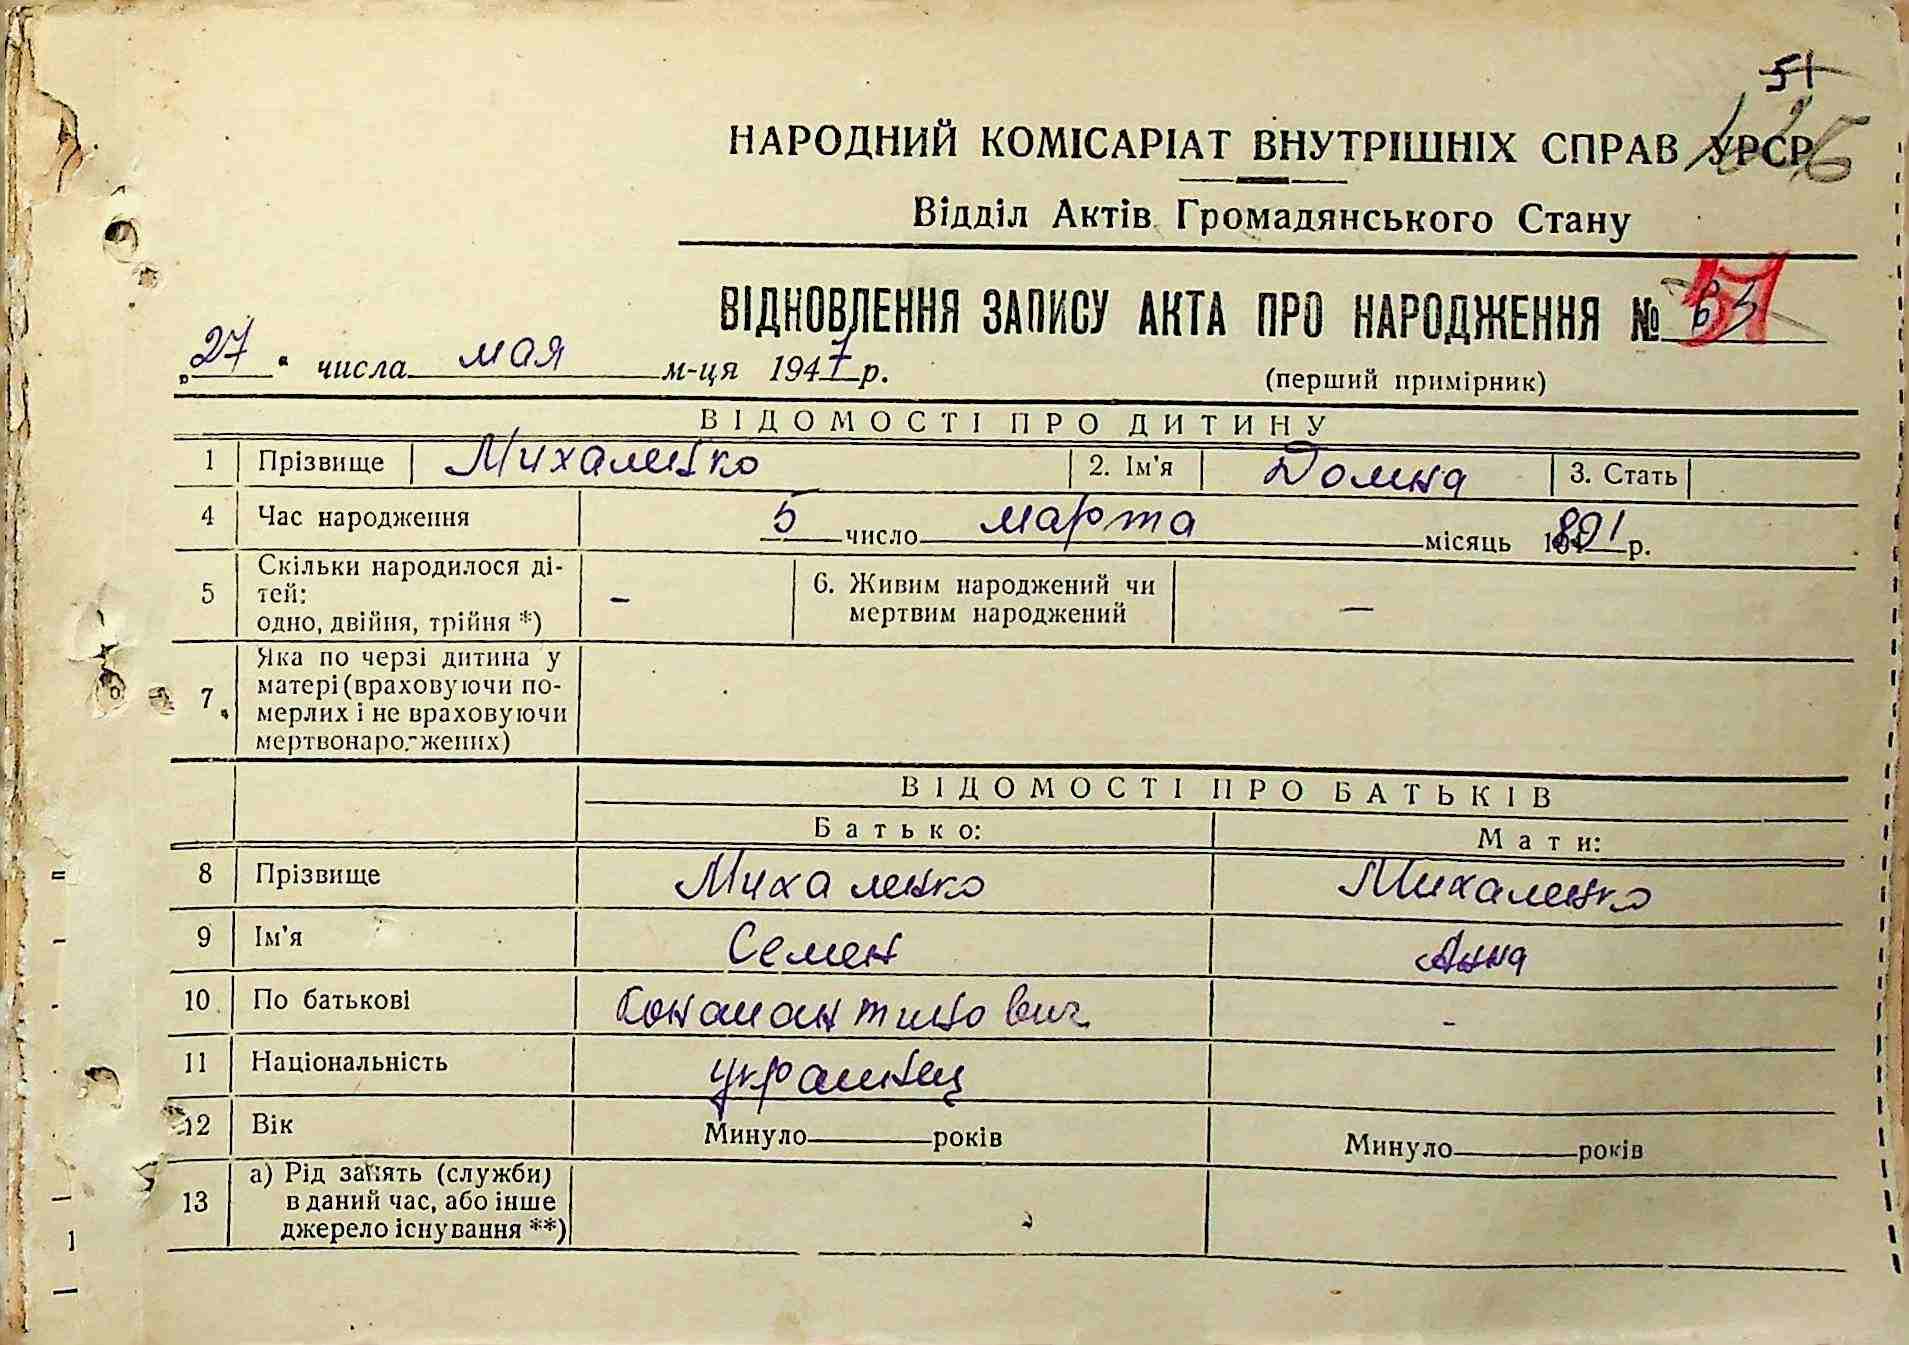 51
НАРОДНИЙ КОМІСАРІАТ ВНУТРІШНІХ СПРАВ УРСР
Відділ Актів Громадянського Стану
ВІДНОВЛЕННЯ ЗАПИСУ АКТА ПРО НАРОДЖЕННЯ № 51
„27“ числа мая м-ця 1947 р.
(перший примірник)
ВІДОМОСТІ ПРО ДИТИНУ
1 Прізвище Михаленко 2. Ім'я Домна 3. Стать
4 Час народження 5 число марта місяць 1891 р.
5 Скільки народилося ді-
тей:
одно, двійня, трійня *) – 6. Живим народжений чи
мертвим народжений —
7 Яка по черзі дитина у
матері (враховуючи по-
мерлих і не враховуючи
мертвонароджених)
ВІДОМОСТІ ПРО БАТЬКІВ
Батько: Мати:
8 Прізвище Михаленко Михаленко
9 Ім'я Семен Анна
10 По батькові Константинович -
11 Національність українец
12 Вік Минуло років Минуло років
13 а) Рід занять (служби)
в даний час, або інше
джерело існування **)